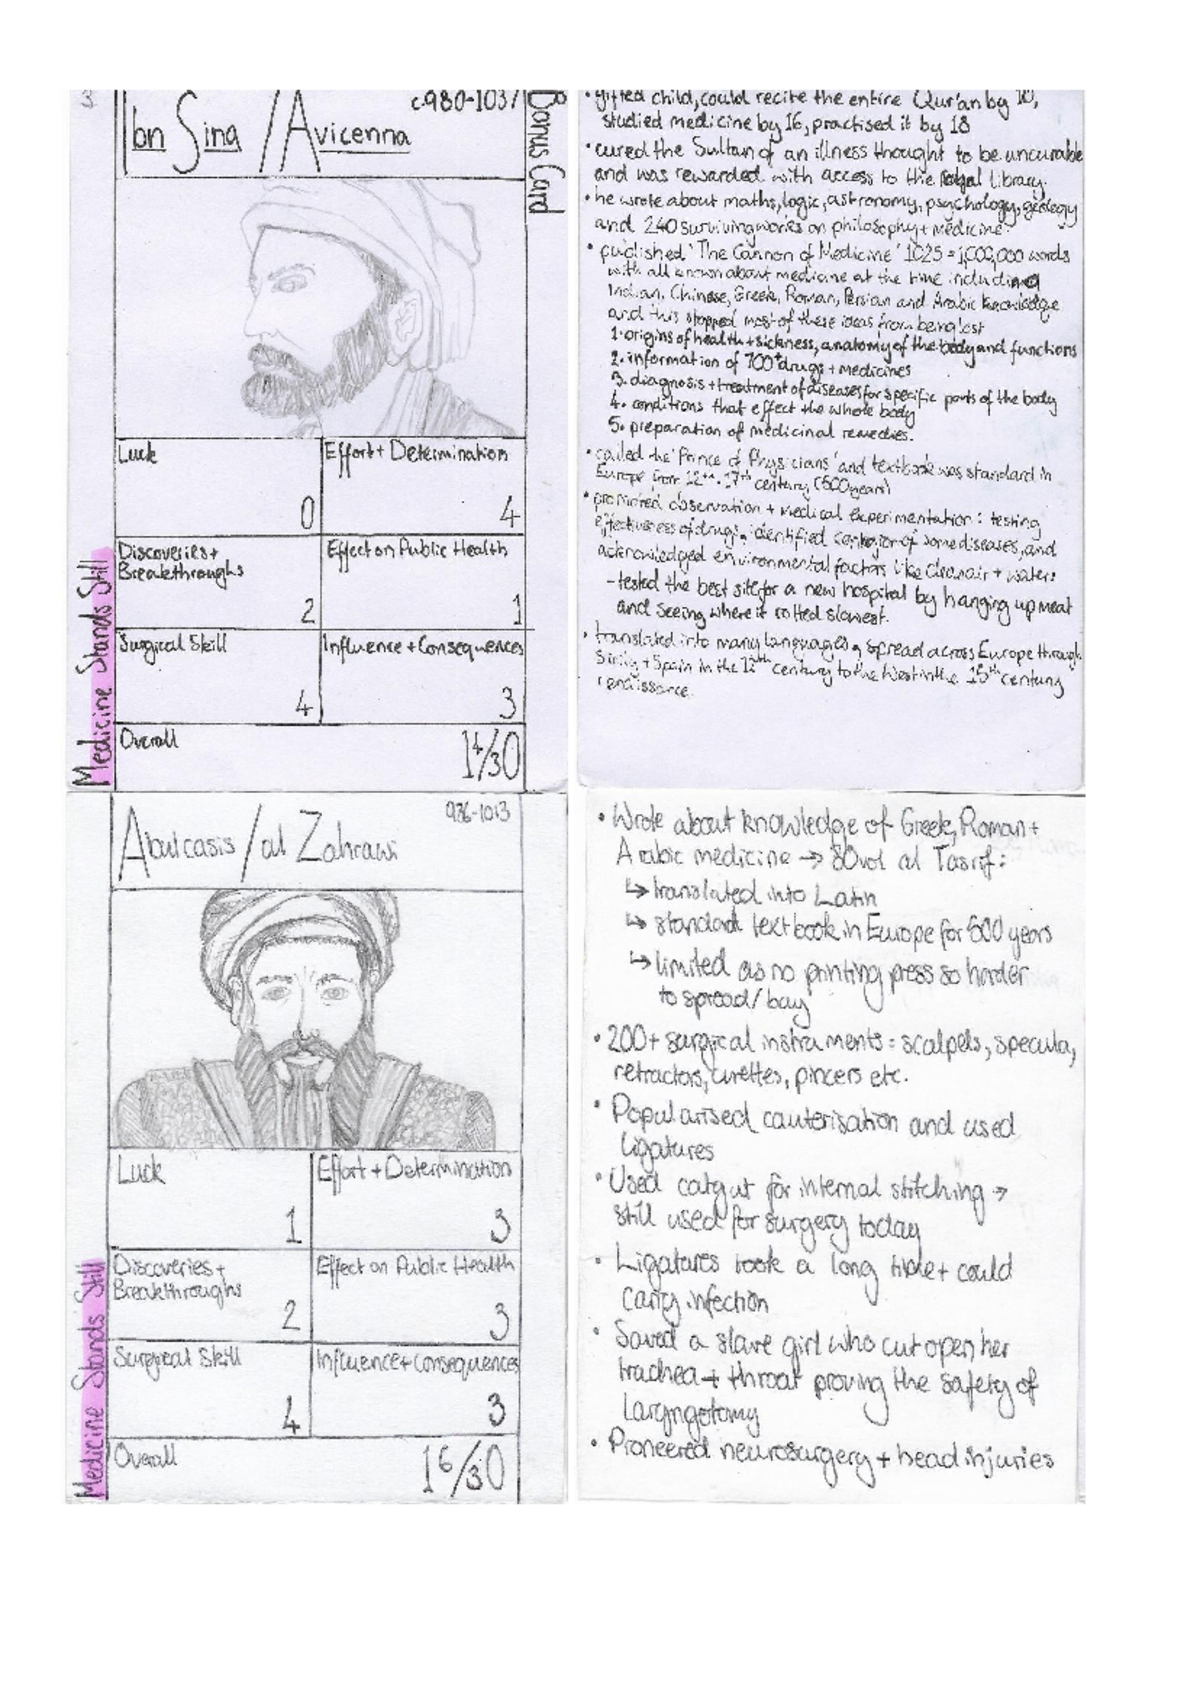 3
c.980-1037
Ibn Sina / Avicenna
Bonus Card
Luck
0
Effort + Determination
4
Discoveries +
Breakthroughs
2
Effect on Public Health
1
Surgical Skill
4
Influence + Consequences
3
Overall
14/30
Medicine Stands Still
• gifted child, could recite the entire Qur'an by 10,
studied medicine by 16, practised it by 18
• cured the Sultan of an illness thought to be uncurable
and was rewarded with access to the royal library.
• he wrote about maths, logic, astronomy, psychology, geology
and 240 surviving works on philosophy + medicine.
• published 'The Cannon of Medicine' 1025 = 1,000,000 words
with all known about medicine at the time including
Indian, Chinese, Greek, Roman, Persian and Arabic knowledge
and this stopped most of these ideas from being lost
1. origins of health + sickness, anatomy of the body and functions
2. information of 700+ drugs + medicines
3. diagnosis + treatment of diseases for specific parts of the body
4. conditions that effect the whole body
5. preparation of medicinal remedies.
• called the 'Prince of Physicians' and textbook was standard in
Europe from 12th - 17th century (500 years)
• promoted observation + medical experimentation: testing
effectiveness of drugs, identified contagion of some diseases, and
acknowledged environmental factors like clean air + waters
- tested the best site for a new hospital by hanging up meat
and seeing where it rotted slowest.
• translated into many languages, spread across Europe through
Sicily + Spain in the 12th century to the West in the 15th century
renaissance.
936-1013
Abulcasis / al Zahrawi
Luck
1
Effort + Determination
3
Discoveries +
Breakthroughs
2
Effect on Public Health
3
Surgical Skill
4
Influence + Consequences
3
Overall
16/30
Medicine Stands Still
• Wrote about knowledge of Greek, Roman +
Arabic medicine → 30vol al Tasrif:
↳ translated into Latin
↳ standard textbook in Europe for 500 years
↳ limited as no printing press so harder
to spread/buy
• 200+ surgical instruments = scalpels, specula,
retractors, curettes, pincers etc.
• Popularised cauterisation and used
ligatures
• Used catgut for internal stitching →
still used for surgery today
• Ligatures took a long time + could
carry infection
• Saved a slave girl who cut open her
trachea + throat proving the safety of
laryngotomy
• Pioneered neurosurgery + head injuries